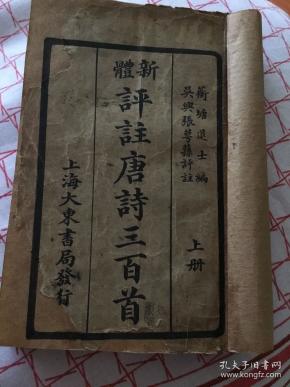 蘅塘退士編
吳興張萼蓀評註
上册
新體
評註唐詩三百首
上海大東書局發行
孔夫子旧书网